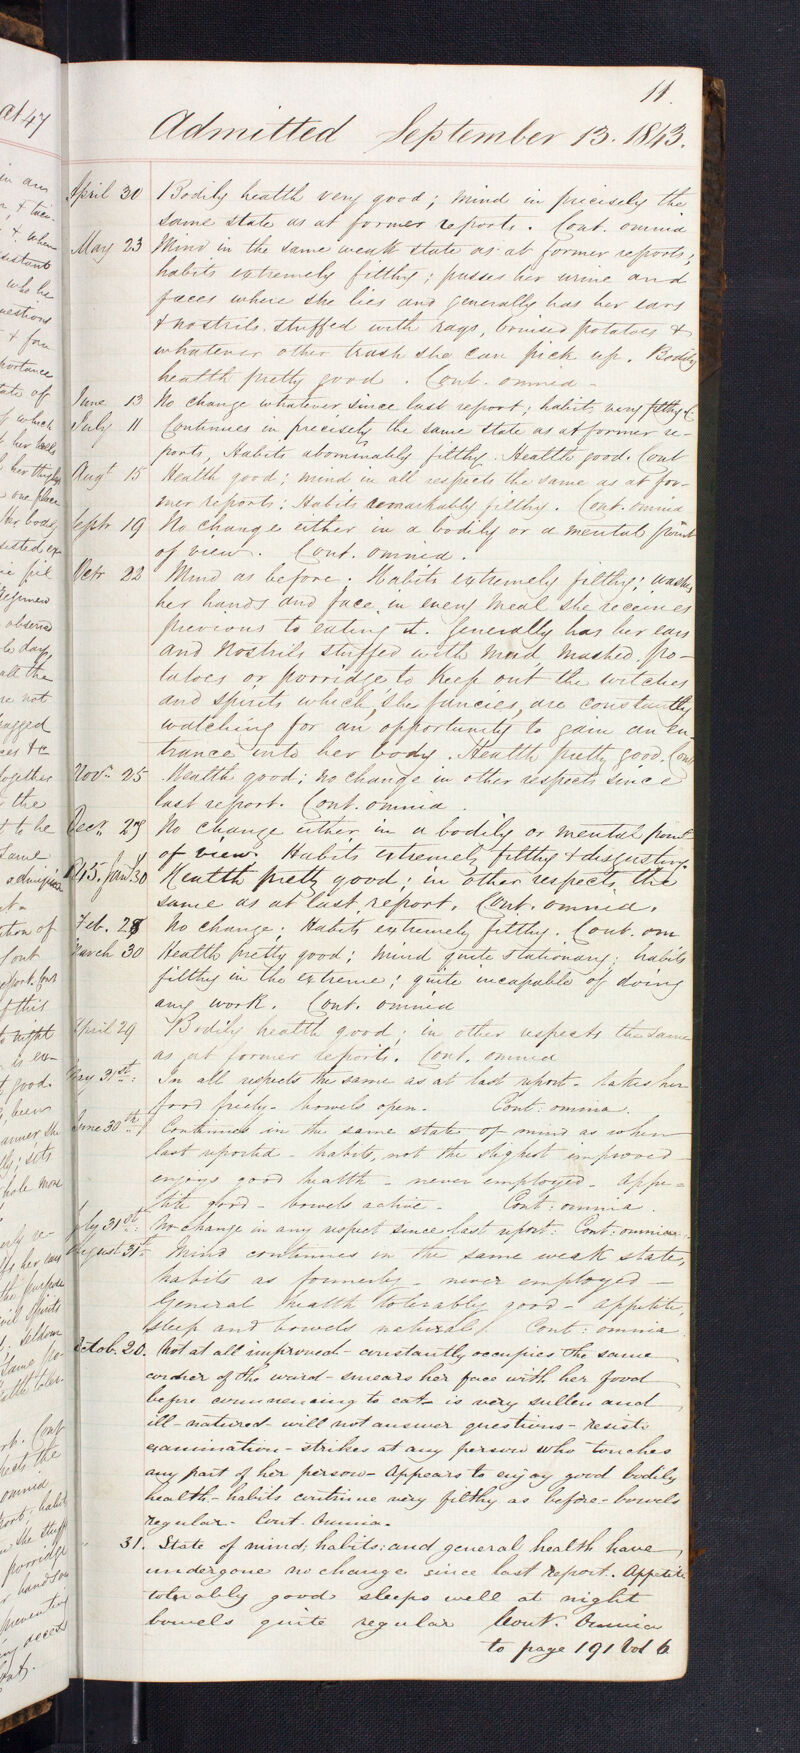 11.
Admitted September 13. 1843.
April 30 Bodily health very good; mind in precisely the
same state as at former reports. Cont. omnia
May 23 Mind in the same weak state as at former reports;
habits extremely filthy; passes her urine and
fæces where she lies and generally has her ears
& nostrils stuffed with rags, bruised potatoes &
whatever other trash she can pick up. Bodily
health pretty good. Cont. omnia
June 13 No change whatever since last report; habits very filthy. C
July 11 Continues in precisely the same state as at former re-
ports, Habits abominably filthy. Health good. Cont
Augt. 15 Health good; mind in all respects the same as at for-
mer reports: Habits remarkably filthy. Cont. omnia
Septr 19 No change either in a bodily or a mental point
of view. Cont. omnia.
Octr 22 Mind as before. Habits extremely filthy; washes
her hands and face in every meal she receives
previous to eating it. Generally has her ears
and nostrils stuffed with mud, mashed po-
tatoes or porridge to keep out the witches
and spirits which, she fancies, are constantly
watching for an opportunity to gain an en-
trance into her body. Health pretty good. Cont
Novr. 25 Health good; no change in other respects since
last report. Cont. omnia.
Decr. 29 No change either in a bodily or mental point
of view. Habits extremely filthy & disgusting.
Jany. 30 Health pretty good; in other respects the
same as at last report. Cont. omnia.
Feb. 28 No change; Habits extremely filthy. Cont. om
March 30 Health pretty good; mind quite stationary; habits
filthy in the extreme; quite incapable of doing
any work. Cont. omnia
April 29 Bodily health good; in other respects the same
as at former reports. Cont. omnia
May 31st: In all respects the same as at last report - takes her
food freely - bowels open. Cont: omnia.
June 30th Continues in the same state of mind as when
last reported - habits, not the slightest improved -
enjoys good health - never employed - appe=
tite good - bowels active - Cont: omnia.
July 31st: No change in any respect since last report: Cont: omnia.
August 31st Mind continues in the same weak state,
habits as formerly - never employed -
General health tolerably good - appetite,
sleep and bowels natural. Cont: omnia.
Octob. 20. Not at all improved - constantly occupies the same
corner of the ward - smears her face with her food
before commencing to eat - is very sullen and
ill-natured - will not answer questions - resists
examination - strikes at any person who touches
any part of her person - Appears to enjoy good bodily
health - habits continue very filthy as before - bowels
regular - Cont. Omnia.
" 31. State of mind; habits: and general health have
undergone no change since last report. Appetite
tolerably good sleeps well at night
bowels quite regular Cont. Omnia
to page 191 Vol 6